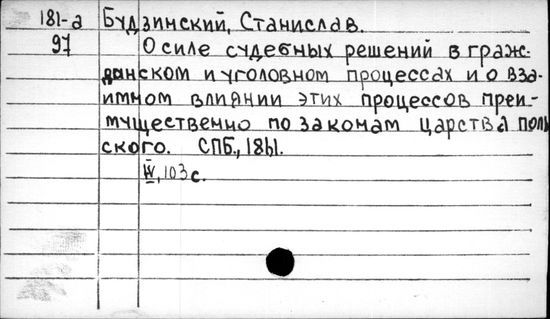 181-а Будзинский, Станислав.
97 О силе судебных решений в граж-
данском и уголовном процессах и о вза-
имном влиянии этих процессов преи-
мущественно по законам царства поль
ского. СПБ., 1861.
IV, 103 с.